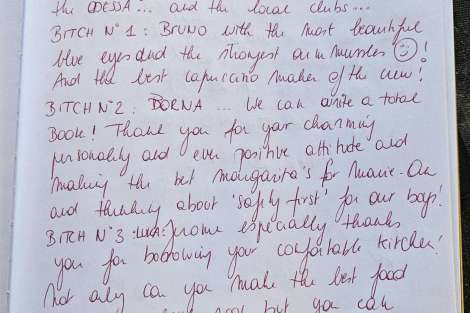 the ODESSA... and the local clubs...
BITCH N°1: BRUNO with the most beautiful
blue eyes and the strongest arm muscles ☺!
And the best capuccino maker of the crew!
BITCH N°2: DORNA ... We can write a total
Book! Thank you for your charming
personality and ever positive attitude and
making the best margarita's for Marie-An
and thinking about 'safety first' for our boys!
BITCH N°3: especially thanks
you for borrowing your comfortable kitchen!
Not only can you make the best food
but you can